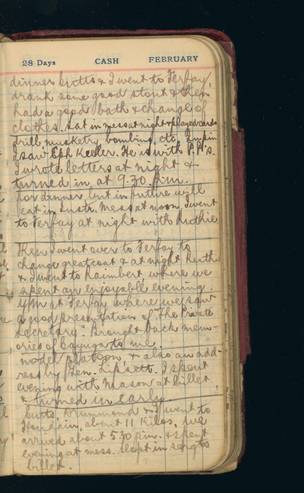 28 Days CASH FEBRUARY
dinner Butts & I went to Ferfay,
drank some good stout & then
had a good bath & change of
clothes. Sat in mess at night & played cards
drill, musketry, bombing, etc.
I saw Keeler. He is with P.P.'s.
I wrote letters at night &
turned in at 9.30 p.m.
for dinner but in future will
eat in Instr. Mess at noon. I went
to Ferfay at night with Ritchie
Keen went over to Ferfay to
change greatcoat & at night Heath
& I went to Raimbert where we
spent an enjoyable evening
YMCA at Ferfay where we saw
a good presentation of "The Private
Secretary". Brought back mem-
ories of to me.
model platoon & also an add-
ress by Gen. Lipsett. I spent
evening with Mason at billet
& turned in early.
Butts, Drummond & I went to
about 11 kilos. We
arrived about 5.30 p.m. & spent
evening at mess. Slept in Sergts
billet.